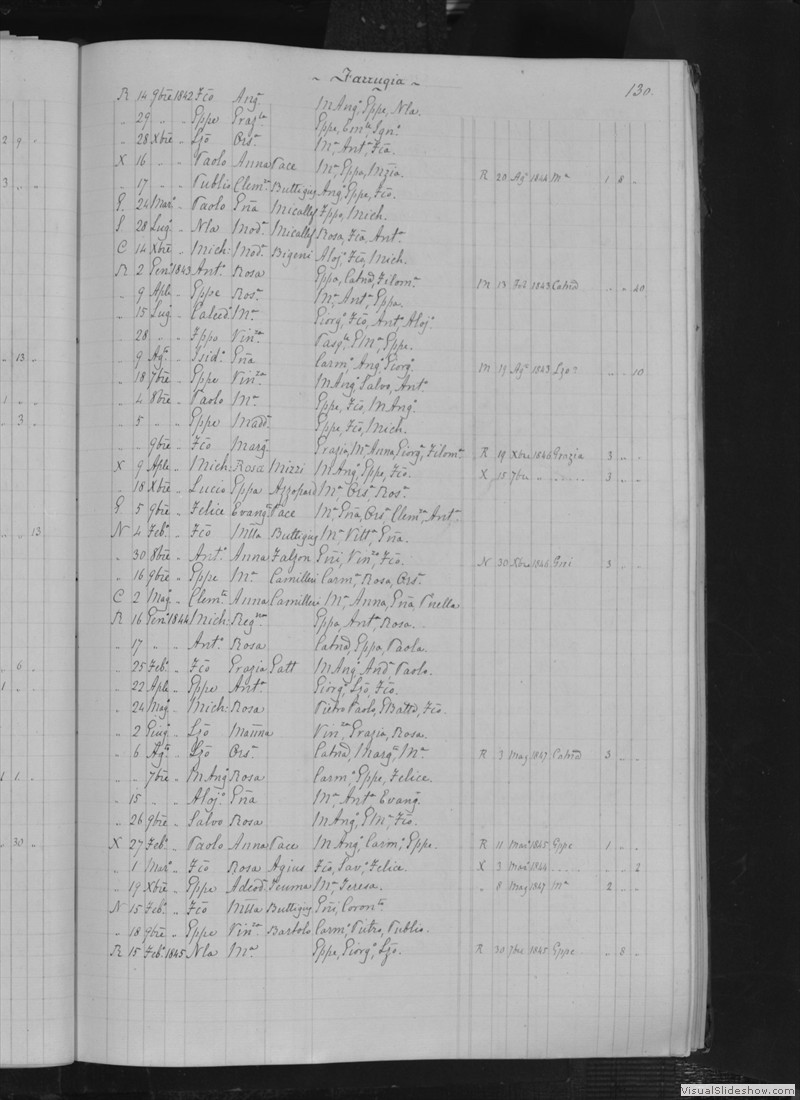 ~ Farrugia ~
130.
R 14 9bre 1842 Fco Ang.a M Ang.a, Gppe, Nla.
" 29 " " Gppe Graz.la Gppe, Em.la, Ign.o
" 28 Xbre " Ljo Ors.a M.a Ant.a, Fca.
X 16 " " Paolo Anna Pace M.a, Gppa, R 20 Ag.o 1844 M.a 1 8 "
" 17 " " Publio Clem.a Buttigieg Ang.a, Gppe, Fco.
G 24 Mar.o " Paolo Gna Micallef Gppe, Mich.
S 28 Lug.o " Nla Mod.a Micallef Rosa, Fca, Ant.a
C 14 Xbre " Mich: Mod.a Bigeni Aloj.o Fco, Mich.
R 2 Gen.o 1843 Ant.o Rosa Gppa, Catnd, Filom.a M 13 Feb 1843 Catnd " " 40
" 9 Aple " Gppe Ros.a M.a Ant.a, Gppa.
" 15 Lug.o " Calced.o M.a Giorg.o, Fco, Ant.o Aloj.o
" 28 " " Fppo Vin.za Pasq.le, GM.a, Gppe.
" 9 Ag.o " Isid.o Gna Carm.o, Ang.o, Giorg.o M 19 Ag.o 1843 " " 10
" 18 7bre " Gppe Vin.za M Ang.o, Salvo, Ant.o
" 4 8bre " Paolo M.a Gppe, Fco, M Ang.o
" 5 " " Gppe Madd.a Gppe, Fco, Mich.
" " 9bre " Fco Marg.a Grazia, M.a Anna, Giorg.o, Filom.a R 19 Xbre 1846 Grazia 3 " "
X 9 Aple " Mich: Rosa Mizzi M Ang.o, Gppe, Fco. X 15 7bre " " 3 " "
" 18 Xbre " Lucio Gppa Azzopard M.a, Ors.a Ros.a
G 5 9bre " Felice Evang.a Pace M.a, Gna, Ors.a Clem.a, Ant.a
N 4 Feb.o " Fco Mtta Buttigieg M.a, Vitt.a, Gna.
" 30 8bre " Ant.o Anna Falzon Gni, Vin.zo, Fco. N 30 Xbre 1846 Gni 3 " "
" 16 9bre " Gppe M.a Camilleri Carm.a, Rosa, Ors.a
C 2 Mag.o " Clem.te Anna Camilleri M.a, Anna, Gna,
R 16 Gen.o 1844 Mich: Reg.na Gppa, Ant.a, Rosa.
" 17 " " Ant.o Rosa Catnd, Gppa, Paola.
" 25 Feb.o " Fco Grazia Gatt M Ang.o, And.a Paolo.
" 22 Aple " Gppe Ant.a Giorg.o, Ljo, Fco.
" 24 Mag.o " Mich: Rosa Pietro Paolo, GBatta, Fco.
" 2 Giug.o " Ljo Mauna Vin.za, Grazia, Rosa.
" 6 Ag.o " Ljo Ors.a Catnd, Marg.a, M.a R 3 Mag 1847 Catnd 3 " "
" " 7bre " M Ang.o Rosa Carm.o, Gppe, Felice.
" 15 " " Aloj.o Gna M.a Ant.a Evang.a
" 26 9bre " Salvo Rosa M Ang.o, GM.a Fco.
X 27 Feb.o " Paolo Anna Pace M Ang.o, Carm.o, Gppe. R 11 Mar.o 1845 Gppe 1 " "
" 1 Mar.o " Fco Rosa Agius Fco, Sav.o, Felice. X 3 Mar.o 1844 " " 2
" 19 Xbre " Gppe Adeod.a M.a, Teresa. " 8 Mag 1847 M.a 2 " "
N 15 Feb.o " Fco Mtta Buttigieg Gni, Coron.ta
" 18 9bre " Gppe Vin.za Bartolo Carm.o, Pietro, Publio.
R 15 Feb.o 1845 Nla M.a Gppe, Giorg.o, Ljo. R 30 7bre 1845 Gppe " 8 "
VisualSlideshow.com